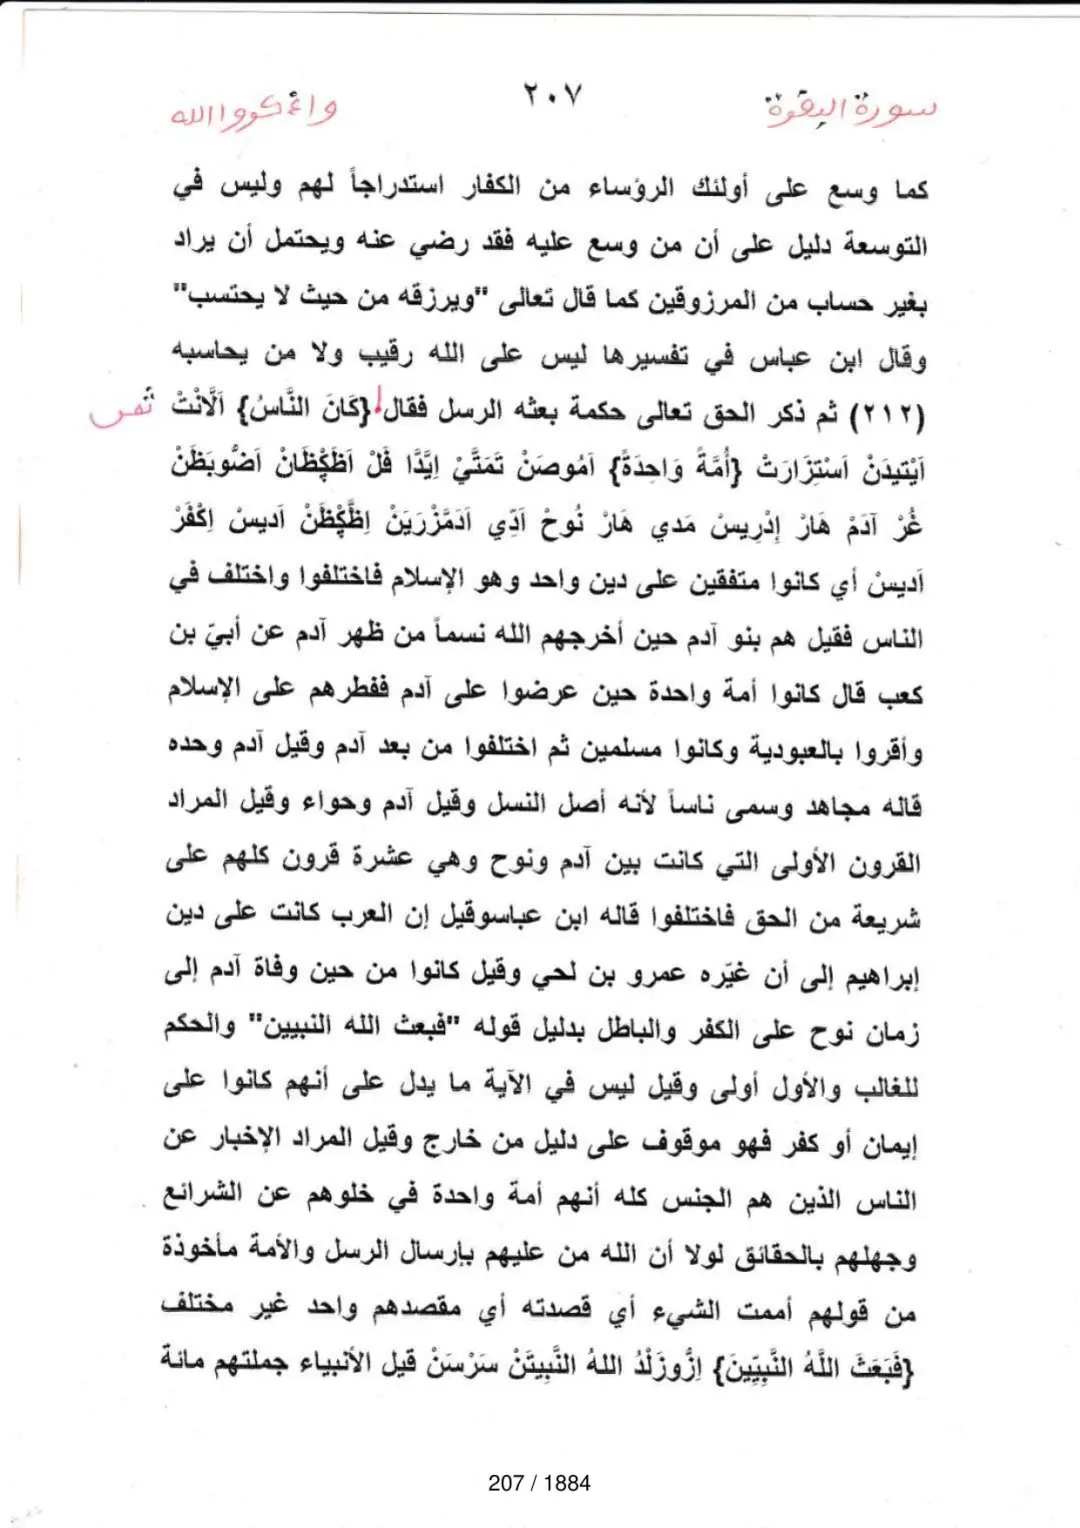 سورة البقرة
٢٠٧
واذكروا الله
كما وسع على أولئك الرؤساء من الكفار استدراجاً لهم وليس في
التوسعة دليل على أن من وسع عليه فقد رضي عنه ويحتمل أن يراد
بغير حساب من المرزوقين كما قال تعالى "ويرزقه من حيث لا يحتسب"
وقال ابن عباس في تفسيرها ليس على الله رقيب ولا من يحاسبه
(٢١٢) ثم ذكر الحق تعالى حكمة بعثه الرسل فقال {كَانَ النَّاسُ} اَلَّانْتْ
اَيْتيدَنْ اَسْتِزَارَتْ {أُمَّةً وَاحِدَةً} اَمُوصَنْ تَمَتَّيْ اِيَّدَّا فَلْ اَظَكِظَانْ اَضُوبَظَنْ
غُرْ آدَمْ هَارْ إِدْرِيسْ مَدي هَارْ نُوحْ اَدِّي اَدَمَّزْرَيَنْ اِظَّكِظَنْ اَديسْ اِكْفَرْ
اَديسْ أي كانوا متفقين على دين واحد وهو الإسلام فاختلفوا واختلف في
الناس فقيل هم بنو آدم حين أخرجهم الله نسماً من ظهر آدم عن أبيّ بن
كعب قال كانوا أمة واحدة حين عرضوا على آدم ففطرهم على الإسلام
وأقروا بالعبودية وكانوا مسلمين ثم اختلفوا من بعد آدم وقيل آدم وحده
قاله مجاهد وسمى ناساً لأنه أصل النسل وقيل آدم وحواء وقيل المراد
القرون الأولى التي كانت بين آدم ونوح وهي عشرة قرون كلهم على
شريعة من الحق فاختلفوا قاله ابن عباسوقيل إن العرب كانت على دين
إبراهيم إلى أن غيّره عمرو بن لحي وقيل كانوا من حين وفاة آدم إلى
زمان نوح على الكفر والباطل بدليل قوله "فبعث الله النبيين" والحكم
للغالب والأول أولى وقيل ليس في الآية ما يدل على أنهم كانوا على
إيمان أو كفر فهو موقوف على دليل من خارج وقيل المراد الإخبار عن
الناس الذين هم الجنس كله أنهم أمة واحدة في خلوهم عن الشرائع
وجهلهم بالحقائق لولا أن الله من عليهم بإرسال الرسل والأمة مأخوذة
من قولهم أممت الشيء أي قصدته أي مقصدهم واحد غير مختلف
{فَبَعَثَ اللَّهُ النَّبِيِّينَ} اِزُّوزَلْدُ اللهُ النَّبِيتَنْ سَرْسَنْ قيل الأنبياء جملتهم مائة
207 / 1884